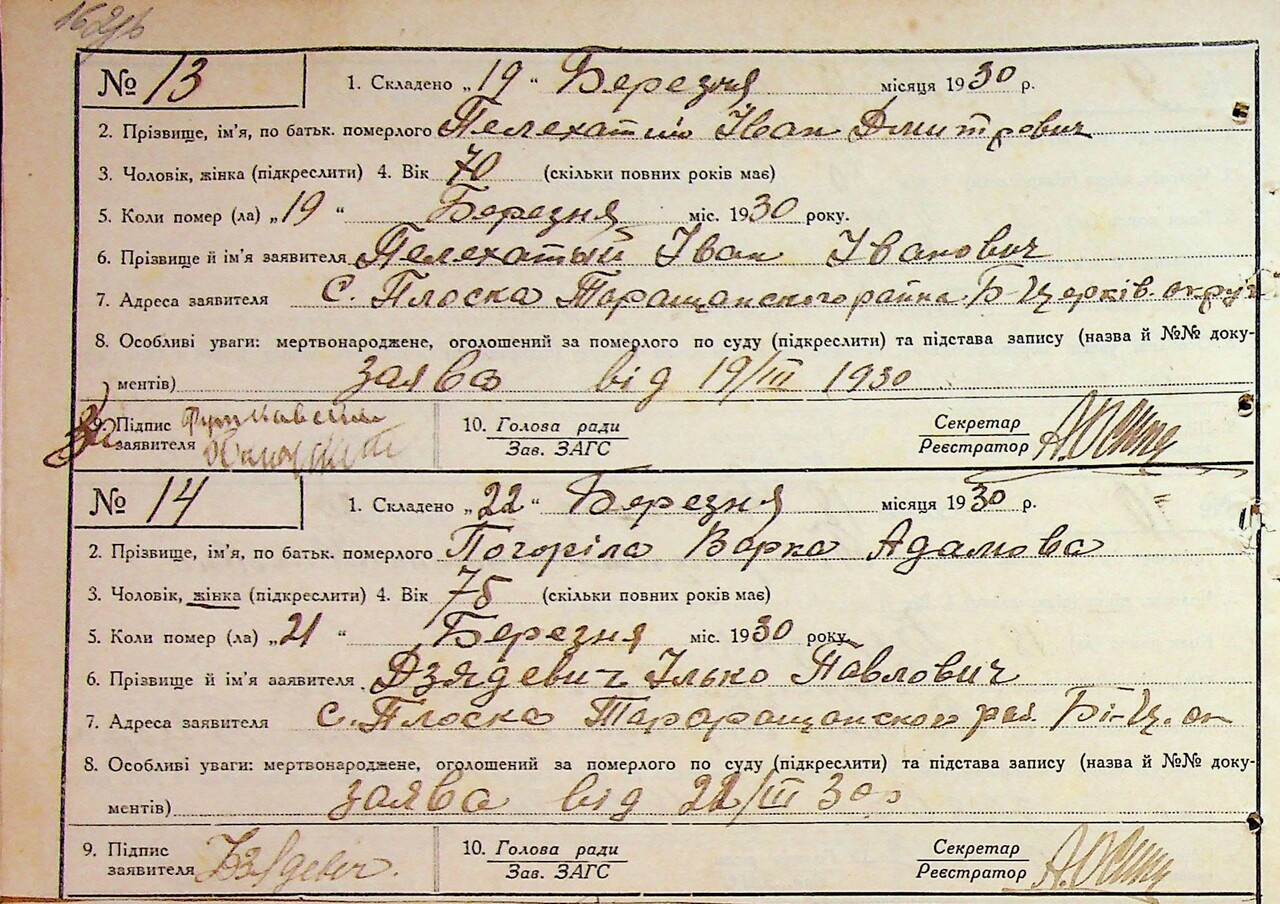 № 13 1. Складено „19“ Березня місяця 1930 р.
2. Прізвище, ім'я, по батьк. померлого Пелехатий Іван Дмитрович
3. Чоловік, жінка (підкреслити) 4. Вік 70 (скільки повних років має)
5. Коли помер (ла) „19“ Березня міс. 1930 року.
6. Прізвище й ім'я заявителя Пелехатый Іван Іванович
7. Адреса заявителя С. Плоска Таращанского райна Б-Церків. округ
8. Особливі уваги: мертвонароджене, оголошений за померлого по суду (підкреслити) та підстава запису (назва й №№ доку-
ментів) заява від 19/III 1930
9. Підпис заявителя
10. Голова ради
Зав. ЗАГС
Секретар
Реєстратор
№ 14 1. Складено „22“ Березня місяця 1930 р.
2. Прізвище, ім'я, по батьк. померлого Погоріла Варка Адамова
3. Чоловік, жінка (підкреслити) 4. Вік 75 (скільки повних років має)
5. Коли помер (ла) „21“ Березня міс. 1930 року.
6. Прізвище й ім'я заявителя Дзядевич Ілько Павлович
7. Адреса заявителя С. Плоска Тараращанского рай Бі-Ц. ок
8. Особливі уваги: мертвонароджене, оголошений за померлого по суду (підкреслити) та підстава запису (назва й №№ доку-
ментів) заява від 22/III 30
9. Підпис заявителя Дзядевич.
10. Голова ради
Зав. ЗАГС
Секретар
Реєстратор